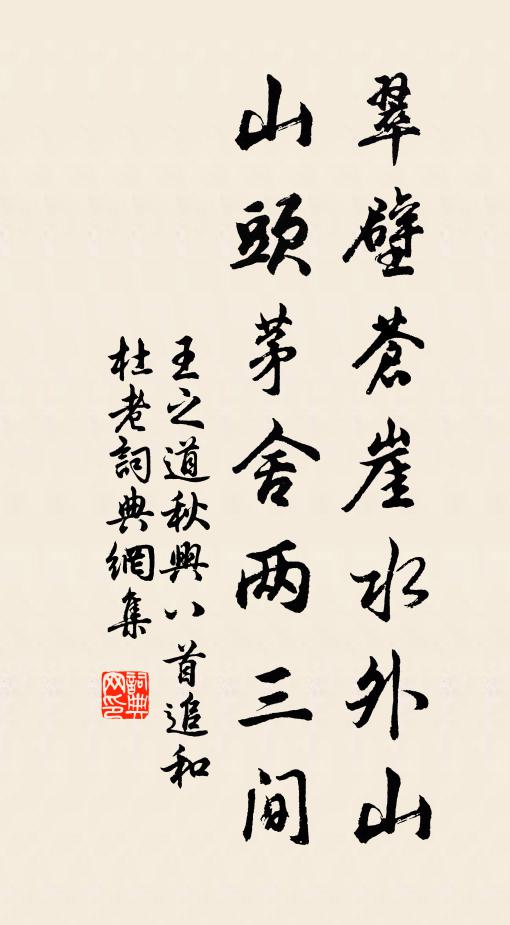 翠壁蒼崖水外山
山頭茅舍两三间
王之道秋興八首追和
杜老詞典網集
詞典网印